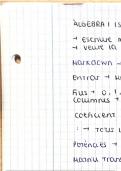 ALGEBRA I
→
→ veure la
Markdown →
Entrar →
Fins → 0, 1,
columnes →
coeficient
: → TOTS
Potències →
Matriu Trans